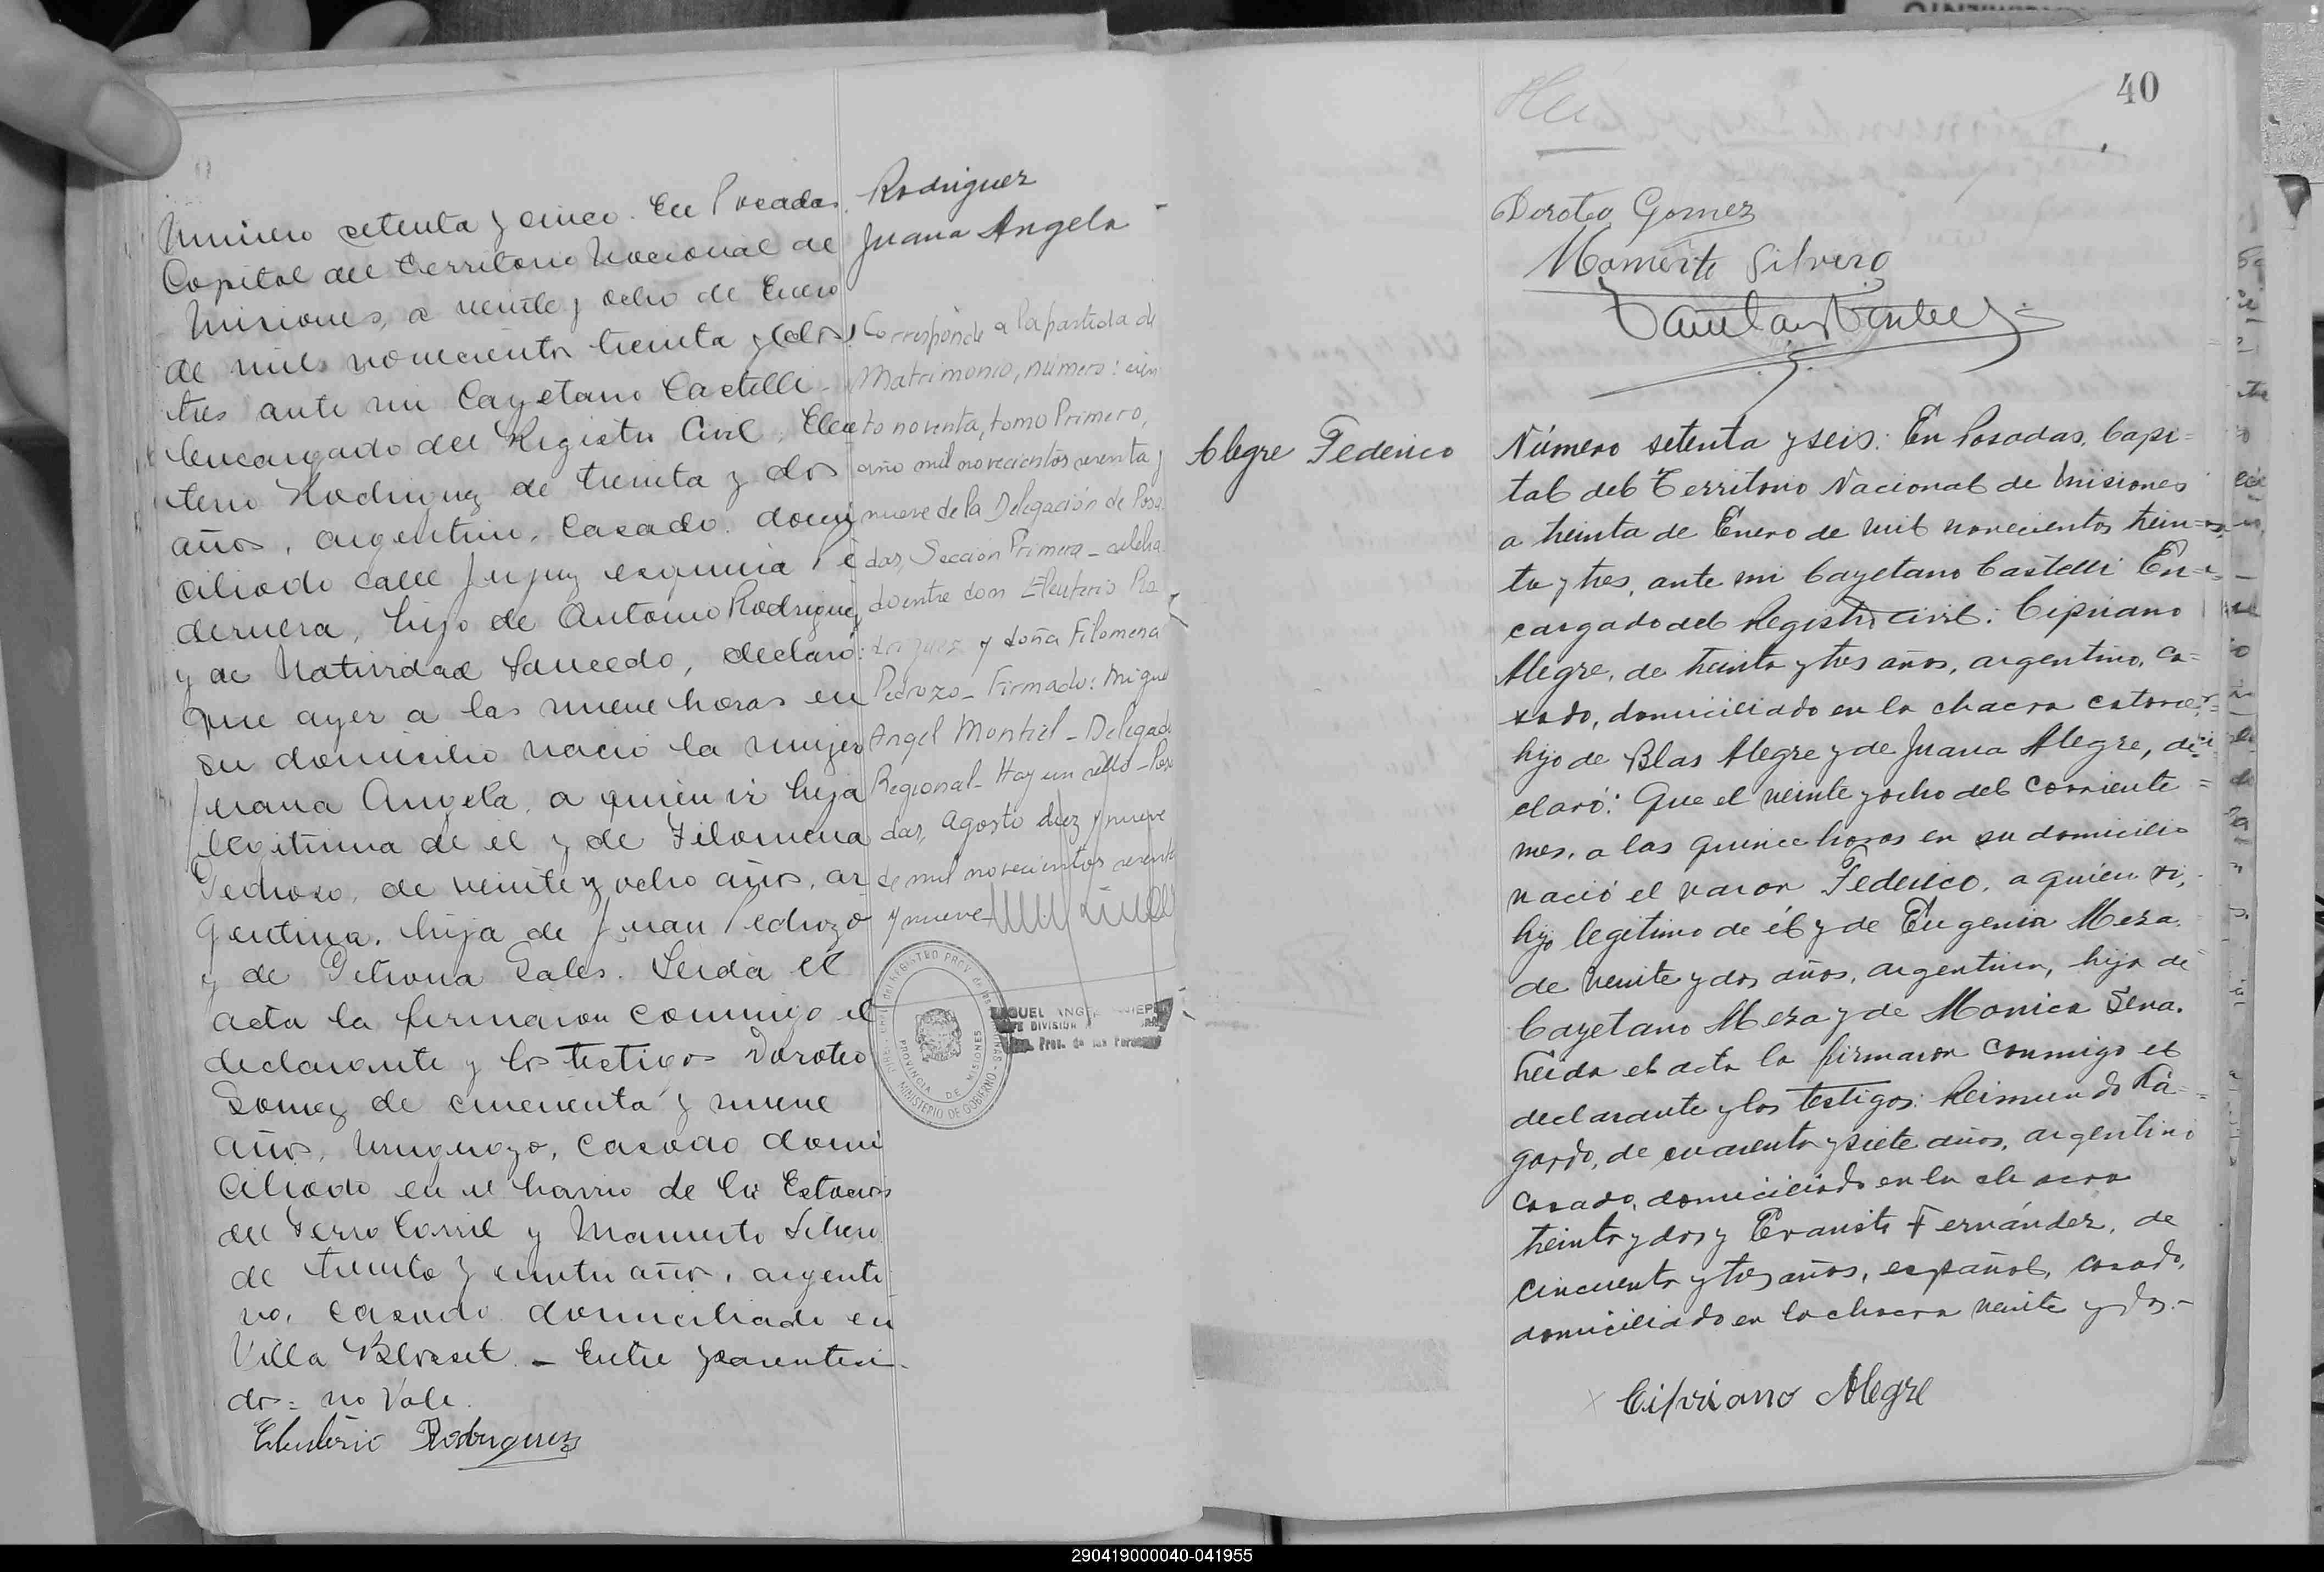 Número setenta y cinco. En Posadas
Capital del Territorio Nacional de
Misiones, a veinte y ocho de Enero
de mil novecientos treinta y (dos)
tres ante mi Cayetano Castelli
Encargado del Registro Civil, Eleu
terio Rodriguez de treinta y dos
años, argentino, casado, domi
ciliado calle Jujuy esquina
dernera, hijo de Antonio Rodriguez
y de Natividad Saucedo, declaró:
Que ayer a las nueve horas en
su domicilio nació la mujer
Juana Angela, a quien vi hija
legitima de el y de Filomena
Pedroso, de veinte y ocho años, ar
gentina, hija de Juan Pedrozo
y de Petrona Gales. Leida el
acta la firmaron conmigo el
declarante y los testigos Doroteo
Gomez de cincuenta y nueve
años, uruguayo, casado domi
ciliado en el barrio de la Estacion
del Ferro Carril y Mamerto Silvero
de treinta y cuatro años, argenti
no, casado domiciliado en
Villa Blosset. - Entre parentesi-
dos= no vale.
Eleuterio Rodriguez
Rodriguez
Juana Angela -
Corresponde a la partida de
Matrimonio, número: cien
to noventa, tomo Primero,
año mil novecientos sesenta y
nueve de la Delegación de Posa
das, Sección Primera - celebra
do entre don Eleuterio Ro
driguez y doña Filomena
Pedrozo - Firmado: Miguel
Angel Montiel - Delegado
Regional - Hay un sello - Posa
das, Agosto diez y nueve
de mil novecientos sesenta
y nueve
MINISTERIO DE GOBIERNO
PROVINCIA DE MISIONES
40
Doroteo Gomez
Mamerto Silvero
Alegre Federico
Número setenta y seis: En Posadas, Capi=
tal del Territorio Nacional de Misiones
a treinta de Enero de mil novecientos trein=
ta y tres, ante mi Cayetano Castelli En=
cargado del Registro Civil: Cipriano
Alegre, de treinta y tres años, argentino, ca=
sado, domiciliado en la chacra catorce,
hijo de Blas Alegre y de Juana Alegre, de=
claró: Que el veinte y ocho del corriente
mes, a las quince horas en su domicilio
nació el varon Federico, a quién vi,
hijo legitimo de él y de Eugenia Meza,
de veinte y dos años, argentina, hija de
Cayetano Meza y de Monica Sena.
Leida el acta la firmaron conmigo el
declarante y los testigos: Reimundo Fa=
gardo, de cuarenta y siete años, argentino
casado, domiciliado en la chacra
treinta y dos y Evaristo Fernández, de
cincuenta y tres años, español, casado,
domiciliado en la chacra veinte y dos.-
Cipriano Alegre
290419000040-041955